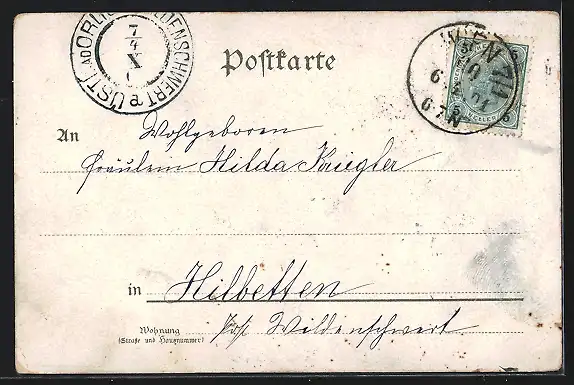 USTÍ NAD ORLICÍ WILDENSCHWERT
7/4
X
Postkarte
WIEN
6
An Wohlgeboren
Fräulein Hilda Kriegler
in Hilbetten
Wohnung
(Straße und Hausnummer)
Post Wildenschwert